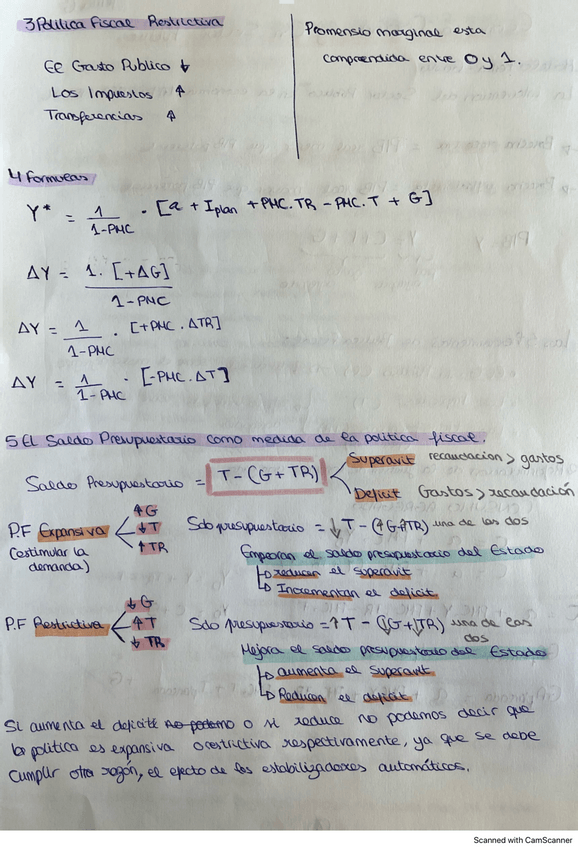 3 Política Fiscal Restrictiva
EE Gasto Publico ↓
Los Impuestos ↑
Transferencias ↑
Promensio marginal esta
comprendida entre 0 y 1.
4 Formulas
Y* = 1/1-PMC · [a + Iplan + PMC.TR - PMC.T + G]
ΔY = 1. [+ΔG]/1-PMC
ΔY = 1/1-PMC · [+PMC.ΔTR]
ΔY = 1/1-PMC · [-PMC.ΔT]
5 El Saldo Presupuestario como medida de la política fiscal.
Saldo Presupuestario = T-(G+TR)
Superavit recaudacion > gastos
Deficit Gastos > recaudación
P.F Expansiva
(estimular la
demanda)
↑G
↓T
↑TR
Sdo presupuestario = ↓T - (↑G↑TR) una de las dos
Empeoran el saldo presupuestario del Estado
↳ reducen el superavit
↳ Incrementan el deficit
P.F Restrictiva
↓G
↑T
↓TR
Sdo presupuestario = ↑T - (↓G+↓TR) una de las
dos
Mejora el saldo presupuestario del Estado
↳ aumenta el superavit
↳ Reducen el deficit
Si aumenta el deficit no podemo o si reduce no podemos decir que
la política es expansiva o restrictiva respectivamente, ya que se debe
cumplir otra razón, el efecto de los estabilizadores automáticos.
Scanned with CamScanner